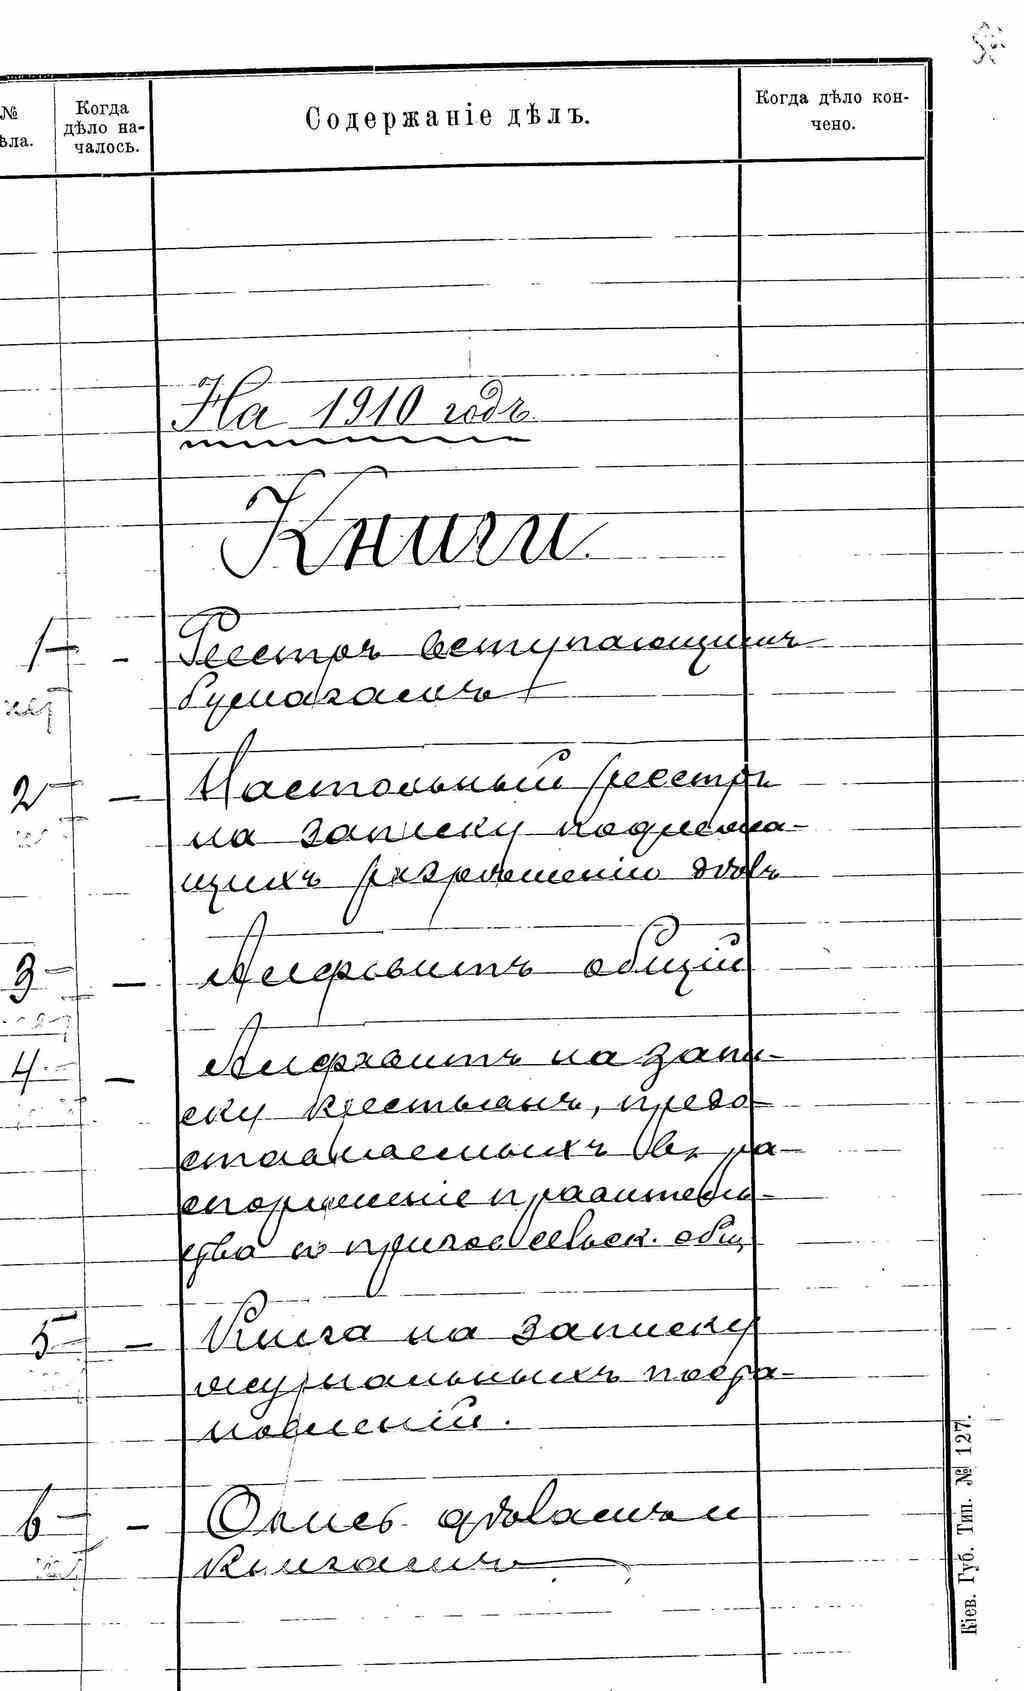 №
ѣла.
Когда
дѣло на-
чалось.
Содержаніе дѣлъ.
Когда дѣло кон-
чено.
На 1910 годъ
Книги.
1 - Реестръ вступающимъ
бумагамъ
2 - Настольный реестръ
на записку подлежа-
щихъ разрѣшенію дѣлъ
3 - Алфавитъ общій
4 - Алфавитъ на запи-
ску крестьянъ, предо-
ставляемыхъ въ ра-
споряженіе правитель-
ства по пригов сельск. общ
5 - Книга на записку
журнальныхъ поста-
новленій.
6 - Опись дѣламъ и
книгамъ
Кіев. Губ. Тип. № 127.